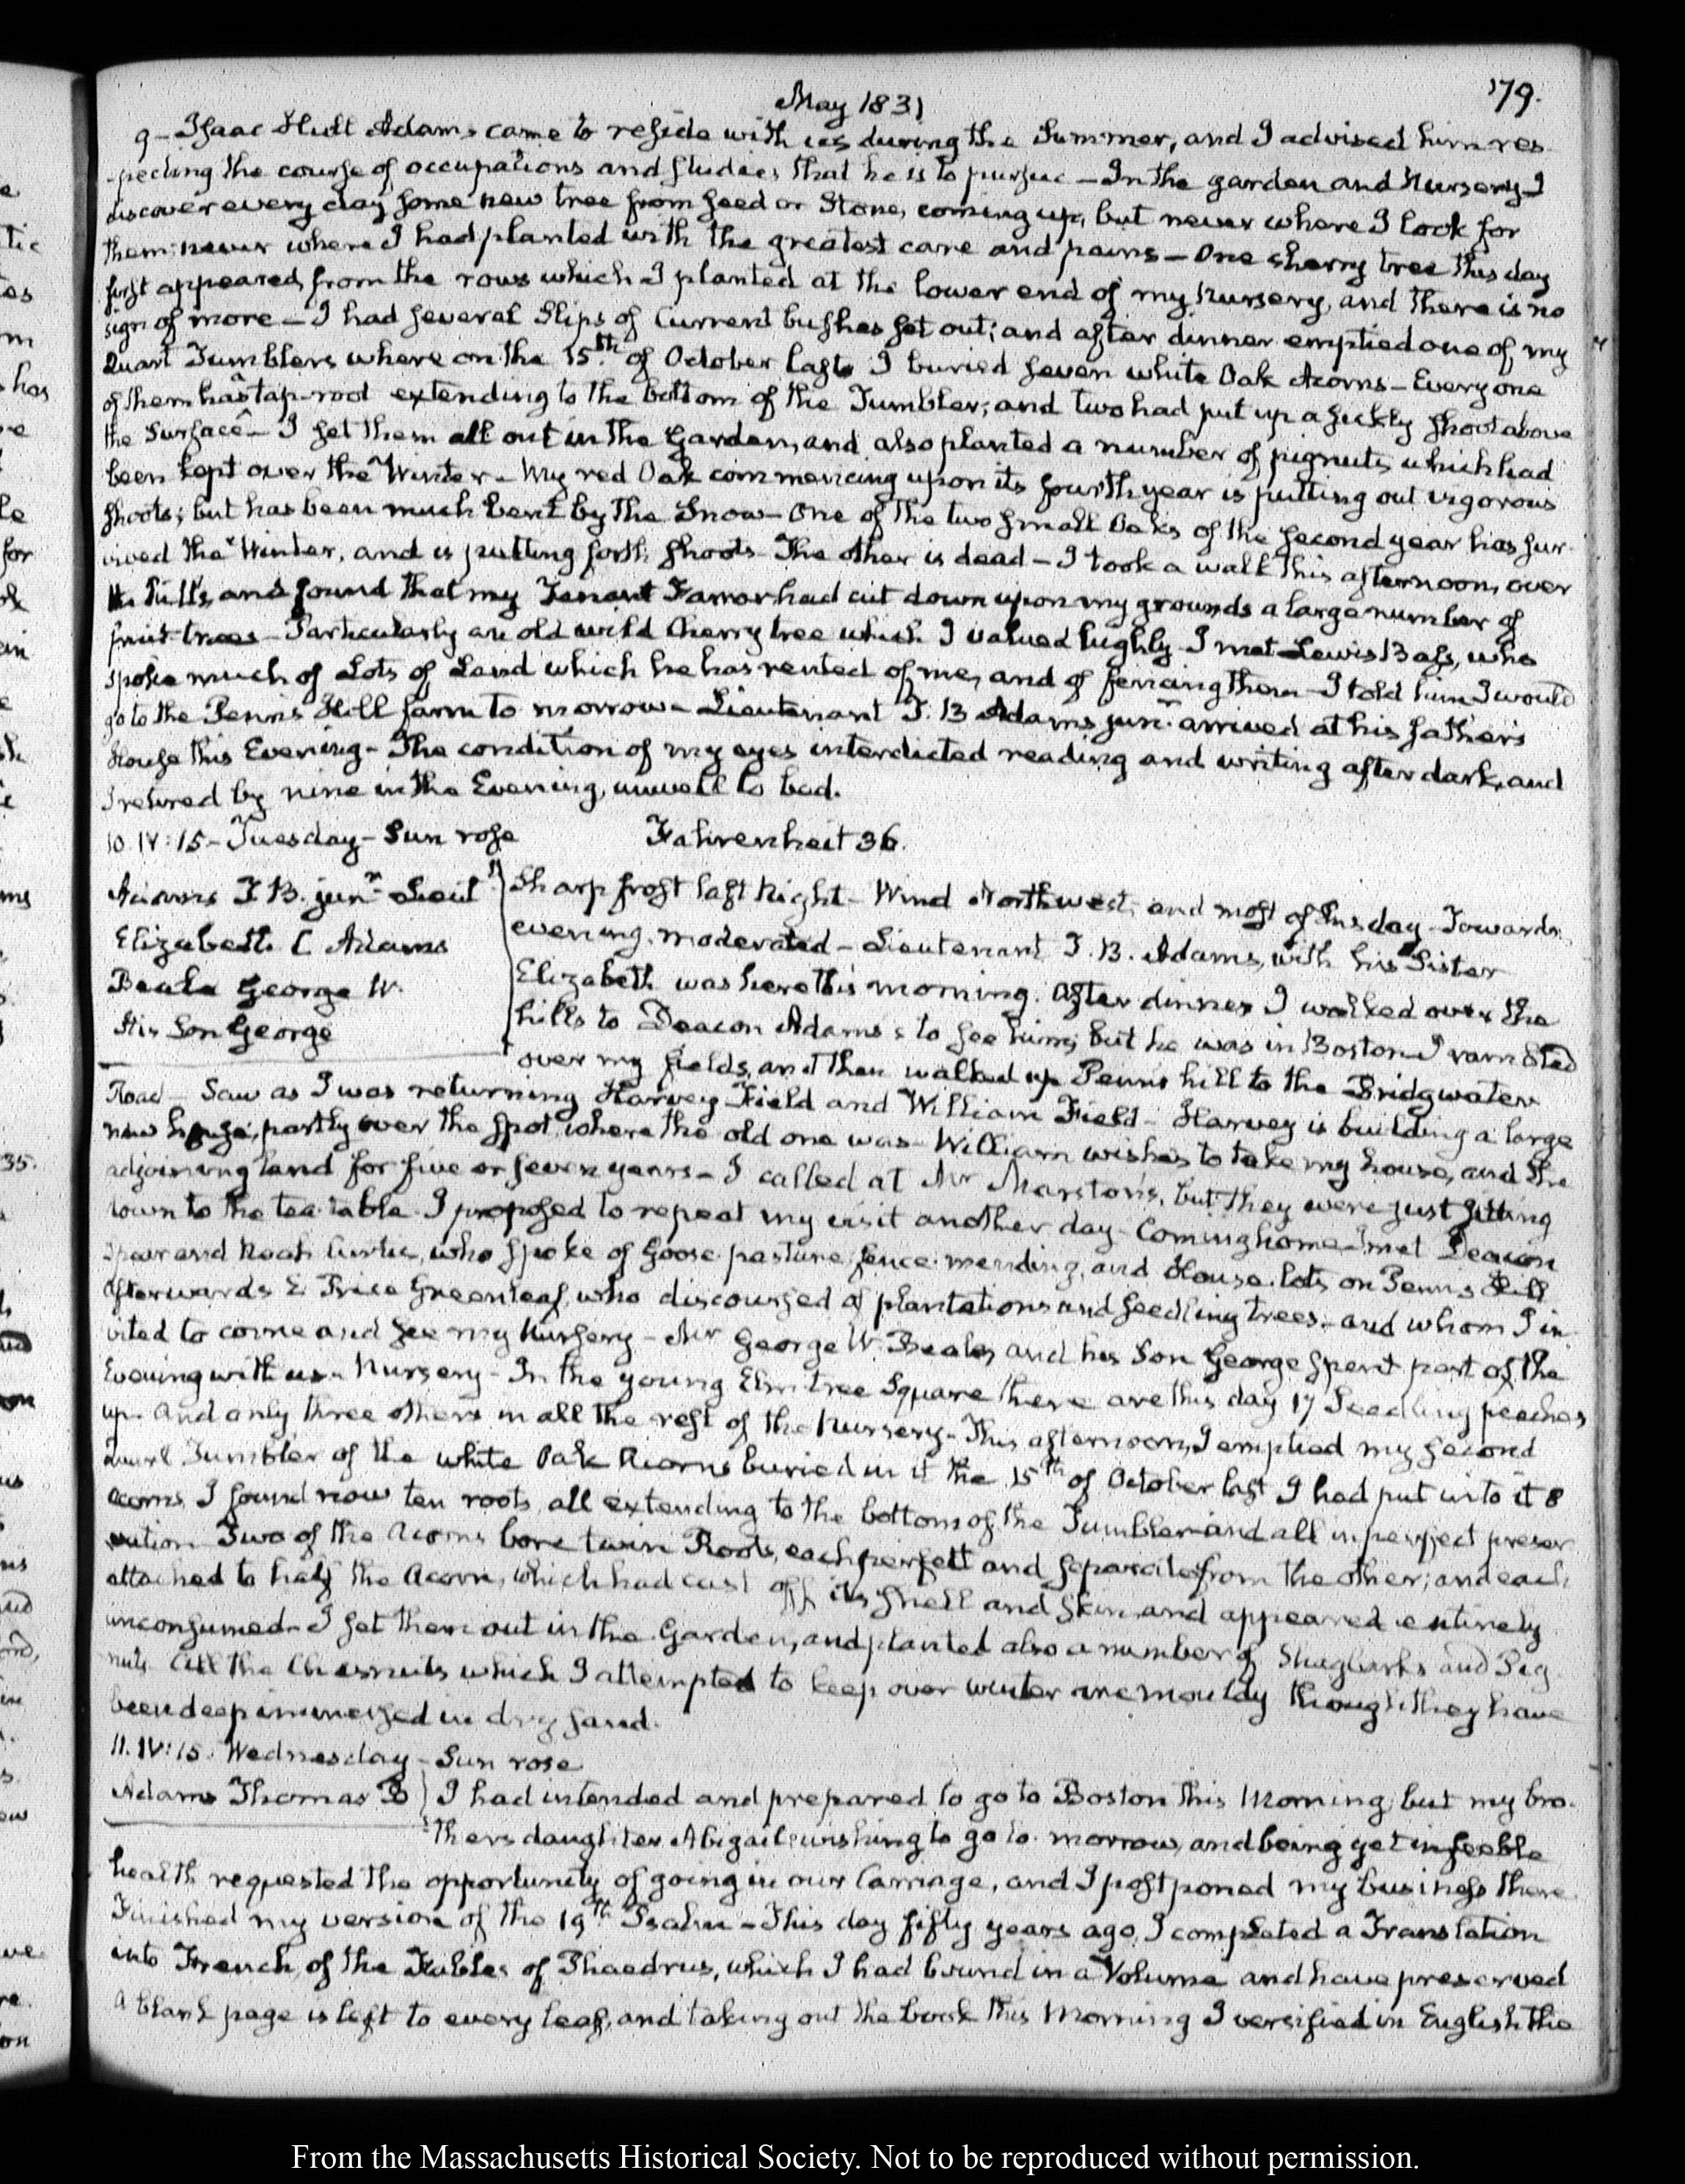 May 1831
179.
9 — Isaac Hull Adams came to reside with us during the Summer, and I advised him res-
-pecting the course of occupations and studies that he is to pursue — In the garden and Nursery I
discover every day some new tree from seed or Stone, coming up, but never where I look for
them; never where I had planted with the greatest care and pains — One cherry tree this day
first appeared, from the rows which I planted at the lower end of my Nursery, and there is no
sign of more — I had several Slips of Currant bushes set out; and after dinner emptied one of my
Quart Tumblers where on the 15th of October last I buried seven white Oak Acorns — Every one
of them has tap-root extending to the bottom of the Tumbler; and two had put up a sickly shoot above
the Surface — I set them all out in the Garden, and also planted a number of pignuts, which had
been kept over the Winter — My red Oak commencing upon its fourth year is putting out vigorous
shoots; but has been much bent by the Snow — One of the two small Oaks of the second year has sur-
vived the Winter, and is putting forth shoots — The other is dead — I took a walk this afternoon, over
the hills, and found that my Tenant Farrar had cut down upon my grounds a large number of
fruit-trees — Particularly an old wild Cherry tree which I valued highly — I met Lewis Bass, who
spoke much of Lots of Land which he has rented of me, and of fencing them — I told him I would
go to the Penn's Hill farm to morrow — Lieutenant J. B Adams junr. arrived at his father's
House this Evening — The condition of my eyes interdicted reading and writing after dark, and
I retired by nine in the Evening, unwell to bed.
10. IV:15 — Tuesday — Sun rose Fahrenheit 36.
Adams J B. junr. Lieut
Elizabeth C Adams
Beale George W.
His Son George
Sharp frost last Night — Wind Northwest, and most of this day — Towards
evening, moderated — Lieutenant J. B. Adams, with his Sister
Elizabeth was here this morning. After dinner I walked over the
hills to Deacon Adams's to see him; but he was in Boston — I rambled
over my fields, and then walked up Penn's hill to the Bridgwater
Road — Saw as I was returning Harvey Field and William Field — Harvey is building a large
new house, partly over the spot where the old one was — William wishes to take my house, and the
adjoining land for five or seven years — I called at Mr Marston's, but they were just sitting
down to the tea table. I proposed to repeat my visit another day — Coming home I met Deacon
Spear and Noah Curtis, who spoke of Goose pasture, fence mending, and House lots on Penn's Hill
Afterwards E Price Greenleaf, who discoursed of plantations and seedling trees — and whom I in-
vited to come and see my Nursery — Mr George W. Beale, and his Son George spent part of the
Evening with us — Nursery — In the young Elm tree Square there are this day 17 Seedling peaches
up. And only three others in all the rest of the Nursery — This afternoon, I emptied my second
Quart Tumbler of the white Oak Acorns buried in it the 15th of October last I had put into it 8
acorns. I found now ten roots, all extending to the bottom of the Tumbler and all in perfect preser-
vation Two of the Acorns bore twin Roots, each perfect and separate from the other; and each
attached to half the Acorn, which had cast off its shell and skin and appeared entirely
unconsumed — I set them out in the Garden, and planted also a number of Shagbarks and Pig-
nuts. All the Chesnuts which I attempted to keep over winter are mouldy though they have
been deep immersed in dry sand.
11. IV:15. Wednesday — Sun rose
Adams Thomas B
I had intended and prepared to go to Boston this Morning; but my bro-
ther's daughter Abigail wishing to go to-morrow, and being yet in feeble
health requested the opportunity of going in our Carriage, and I postponed my business there
Finished my version of the 19th Psalm — This day fifty years ago, I completed a Translation
into French, of the Fables of Phaedrus, which I had bound in a Volume and have preserved
A blank page is left to every leaf, and taking out the book this Morning I versified in English the
From the Massachusetts Historical Society. Not to be reproduced without permission.